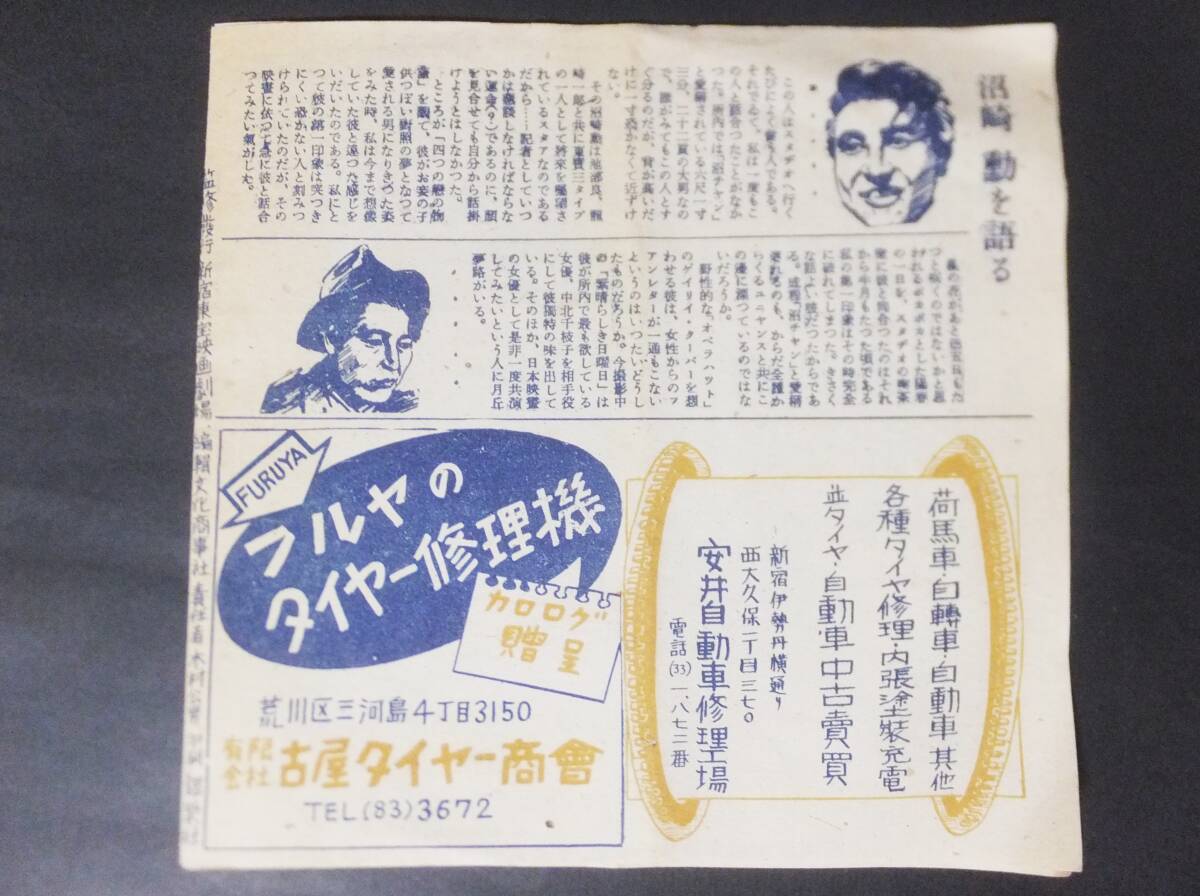 沼崎勳を語る
この人はスタヂオへ行く
たびによく會ふ人である。
それでゐて、私は一度もこ
の人と話合つたことがなか
つた。所内では「沼チヤン」
と愛稱されてゐる六尺一寸
三分、二十二貫の大男なの
で、誰がみてもこの人とす
ぐ分るのだが、背が高いだ
けに一寸恐かなくて近ずけ
ない。
その沼崎勳は池部良、龍
崎一郎と共に東寶三タイプ
の一人として將來を囑望さ
れているスタアなのである
だから……記者としていつ
かは懇談しなければならな
い運命(?)であるのに、顔
を見合せても自分から話掛
けようとはしなかつた。
ところが「四つの戀の物
語」を觀て、彼がお妾の子
供つぽい對照の夢となつて
愛される男になりきつた姿
をみた時、私は今まで想像
していた彼と違つた感じを
いだいたのである。私にと
つて彼の第一印象は突つき
にくい恐かない人と刻みつ
けられていたのだが、その
映畫に依つて急に彼と話合
つてみたい氣がした。
つと咲くのではないかと思
われるポカポカとした陽春
の一日を、スタヂの喫茶
室に彼と落合つたのはそれ
から半月もたつた頃である
私の第一印象はその時完全
に破れてしまつた。きさく
な話よい彼だつたからであ
る。道理「沼チヤン」と愛稱
されるのも、からだ全體か
らくるユニヤンスと共にこ
の邊に深つているのではな
いだろうか。
野性的な「オペラハツト」
のゲイリイ・クーパーを想
わせる彼は、女性からのフ
アンレターが一通もこない
というのはいつたいどうし
たものだろうか。今撮影中
の「素晴らしき日曜日」は
彼が所内で最も欲している
女優、中北千枝子を相手役
にして彼獨特の味を出して
いる。そのほか、日本映畫
の女優として是非一度共演
してみたいという人に月丘
夢路がいる。
荷馬車・自轉車・自動車其他
各種タイヤ修理・内張塗装充電
並タイヤ・自動車中古賣買
新宿伊勢丹横通り
西大久保一丁目三七〇
安井自動車修理工場
電話(33)一、八七二番
FURUYA
フルヤの
タイヤー修理機
カロログ
贈呈
荒川区三河島4丁目3150
有限会社 古屋タイヤー商會
TEL(83)3672
監修・發行 新宿東宝映画劇場、編輯文化商事社